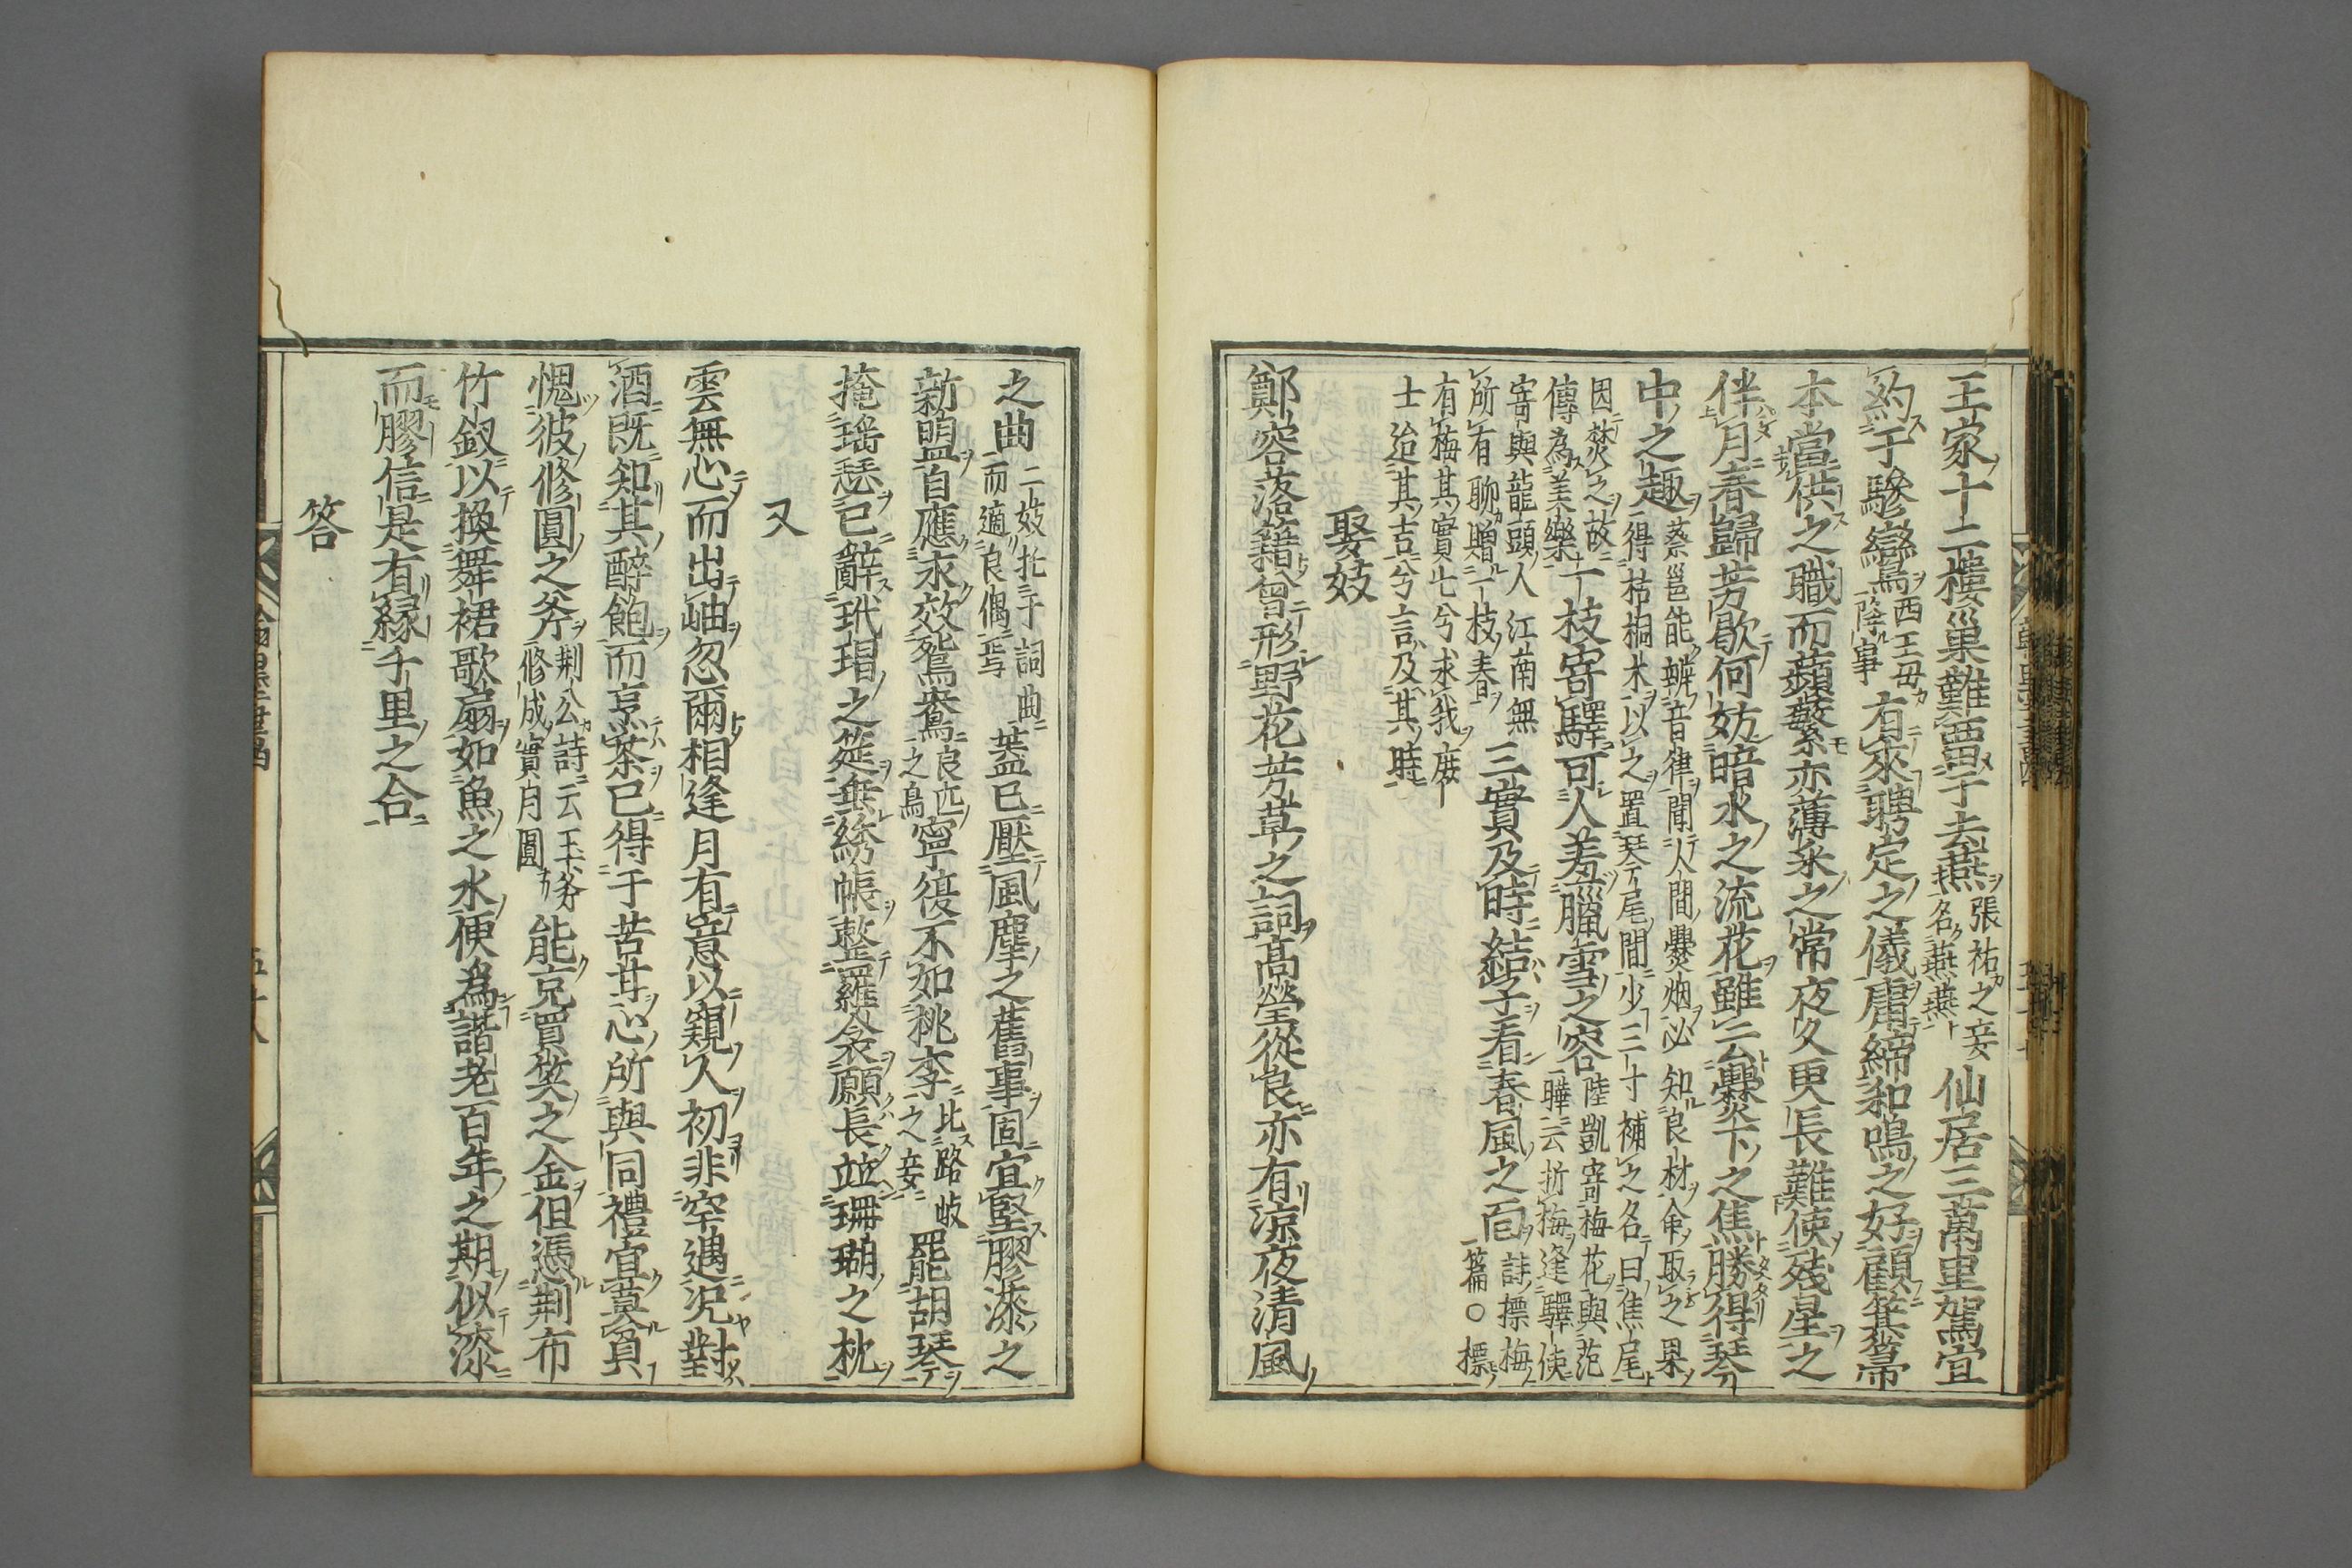 王家十二樓巢難覃于去燕張祐之妾名燕燕仙居三萬里駕宜
約于驂鸞西王母降事有來聘定之儀庸締和鳴之好顧箕箒
本當供之職而蘋蘩亦薄采之常夜久更長難使殘星之
伴月春歸芳歇何妨暗水之流花雖云㸑下之焦勝得琴
中之趣蔡邕能辨音律聞人間㸑烟必知良材命取之果得枯桐木以之置琴尾間少三寸補之名曰焦尾
因焚之故傳為美樂一枝寄驛可人羞臘雪之容陸凱寄梅花與范曄云折梅逢驛使
寄與龍頭人江南無所有聊贈一枝春三實及時結子看春風之面詩摽梅篇○摽
有梅其實七兮求我庶士迨其吉兮言及其時
娶妓
鄭容落籍曾形野花芳草之詞髙瑩從良亦有涼夜清風
之曲二妓托于詞曲而適良偶焉蓋已壓風塵之舊事固宜堅膠漆之
新盟自應永效鴛鴦良匹之鳥寧復不如桃李比路岐之妾罷胡琴
掩瑤瑟已辭玳瑁之筵垂綉帳整羅衾願長並珊瑚之枕
又
雲無心而出岫忽爾相逢月有意以窺人初非罕遇况對
酒既知其醉飽而烹茶已得于苦甘心所與同禮宜莫負
愧彼修圓之斧荆公詩云玉斧修成寶月圓能克買笑之金但憑荆布
竹釵以換舞裙歌扇如魚之水便為諧老百年之期似漆
而膠信是有緣千里之合
答